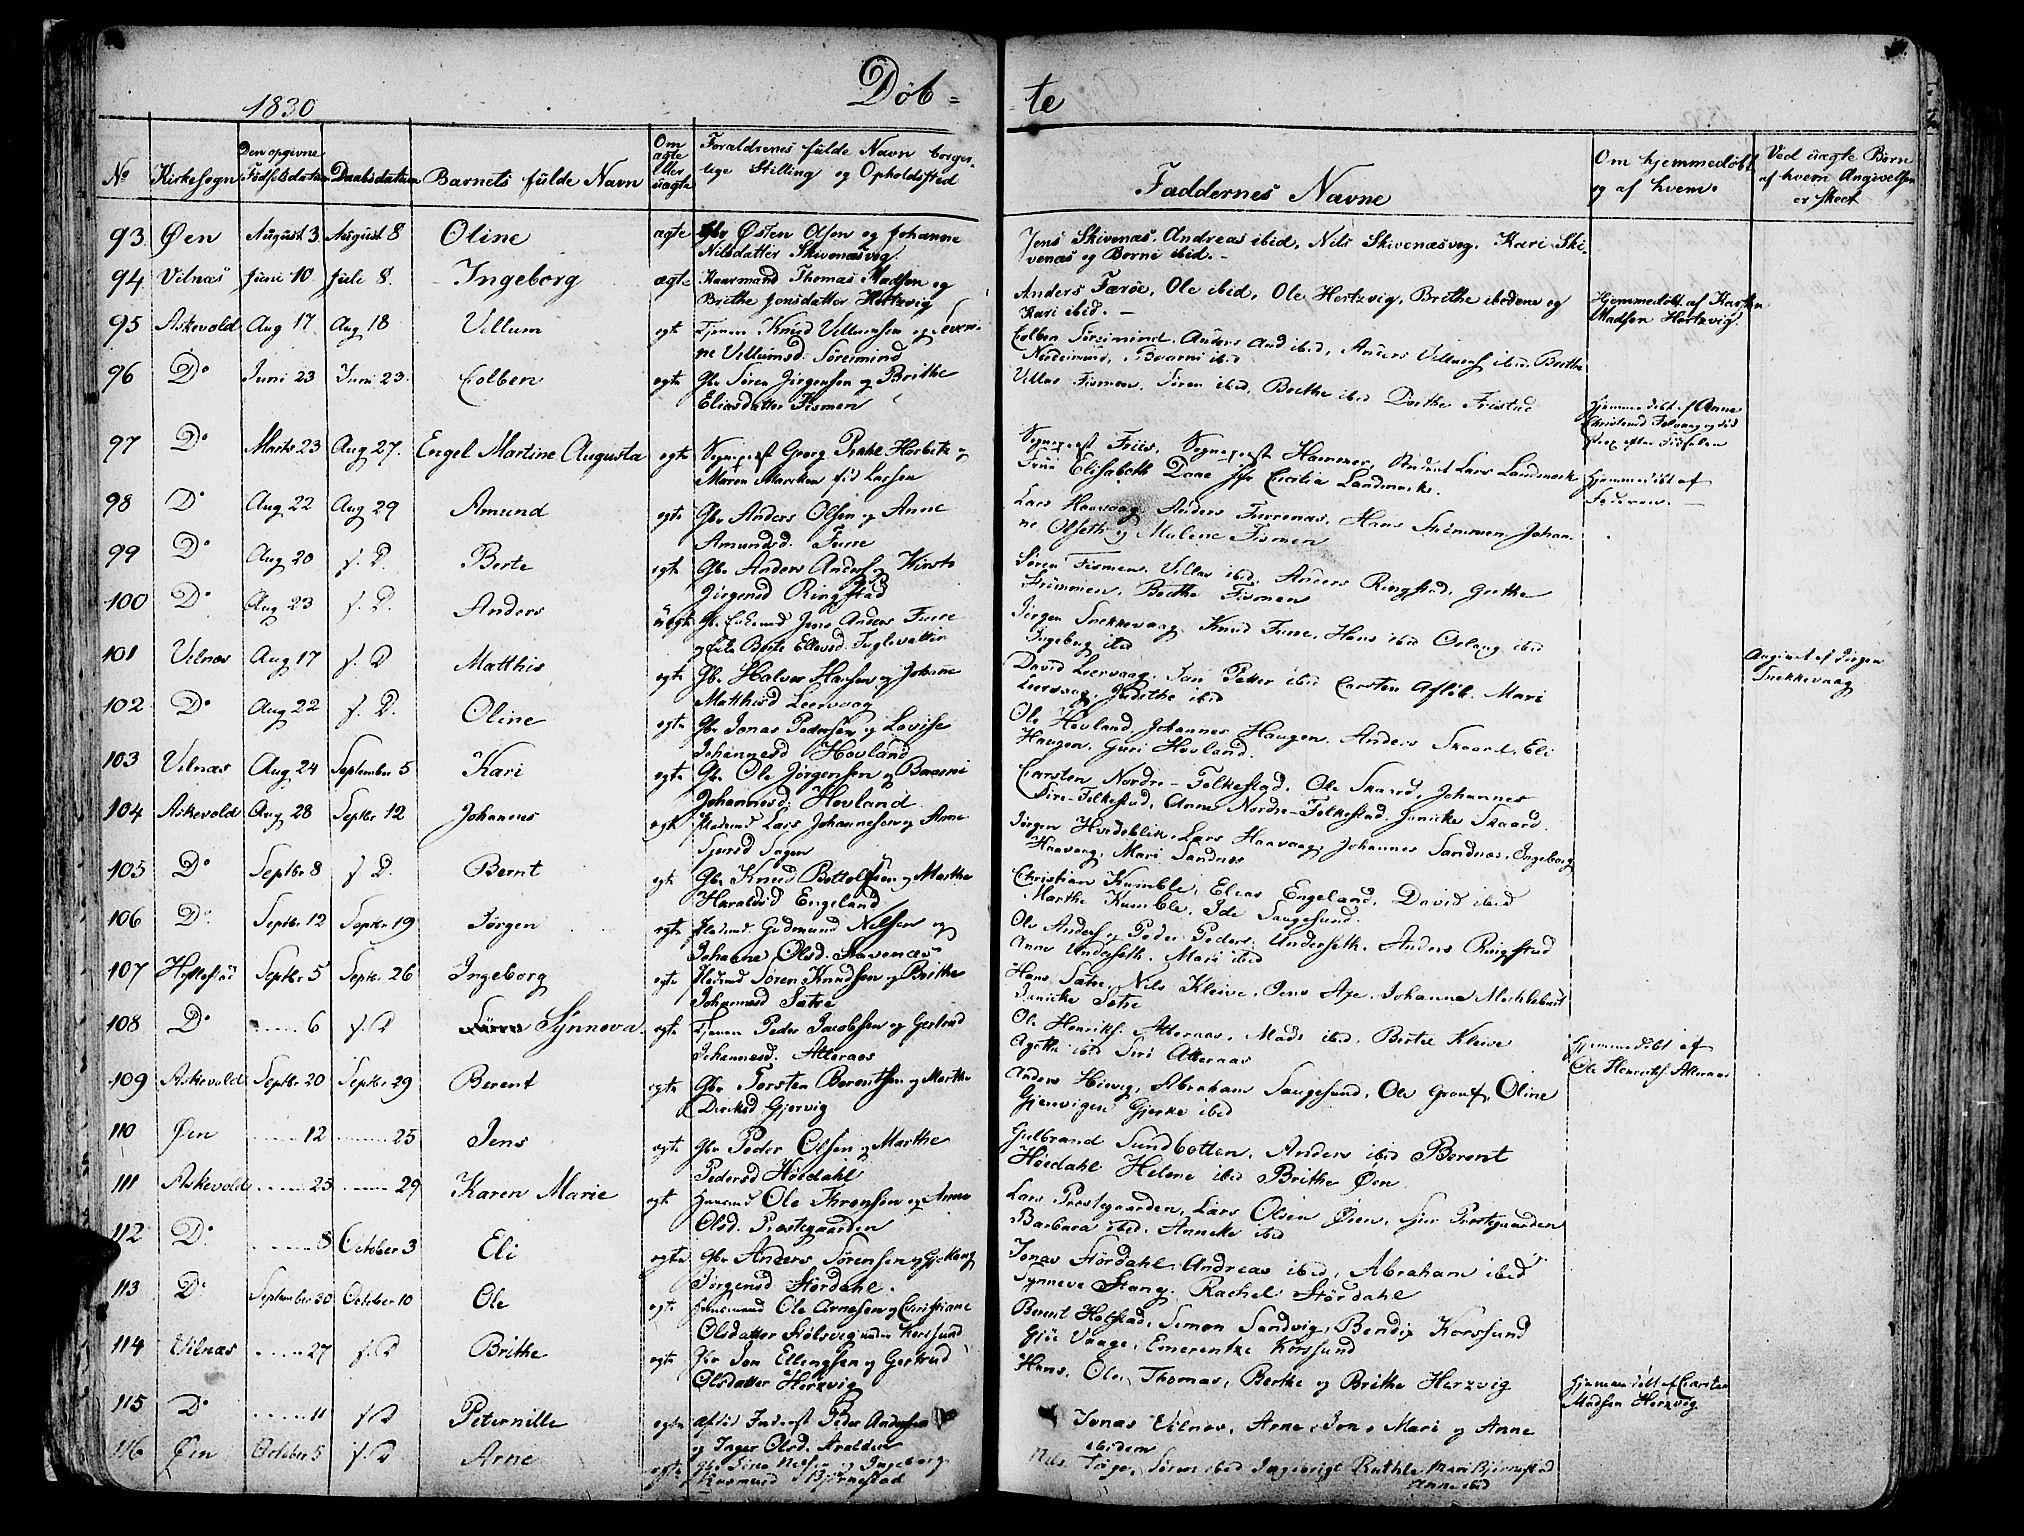 1830 Døb= -te
No Kirkesogn Den opgivne Fødselsdatum Daabsdatum Barnets fulde Navn Om ægte eller uægte Forældrenes fulde Navn borgerlige Stilling og Opholdsted Faddernes Navne Om hjemmedøbt og af hvem. Ved uægte Børn af hvem Angivelsen er skeet
93 Øen August 3 August 8 Oline ægte Gbr Østen Olsen og Johanne
Nilsdatter Skivenæsvog
Jens Skivenæs, Andreas ibid, Nils Skivenæsvog, Kari Ski-
venæs og Borni ibid.-
94 Vilnæs Juni 10 Juli 8. Ingeborg ægte Huusmand Thomas Madsen og
Brithe Jonsdatter Hertzvig
Anders Færøe, Ole ibid, Ole Hertzvig, Brithe ibidem og
Kari ibid. -
Hjemmedøbt af Karsten
Madsen Hertzvig.
95 Askevold Aug 17. Aug 18 Villum egte Knud Villumsen og Severi-
ne Villumsd. Søreimind
Colben Søreimind, Anders ibid, Anders ibid, Berthe
Nordeimind, ibid
96 Do Juni 23 Juni 23. Colben egte Gbr Søren Jørgensen og Brithe
Eliasdatter Fismen
Villas Fismen, Søren ibid, Berthe ibid Dorthe
Hjemmedøbt af Anne
strax efter Fødselen
97 Do Marts 23 Aug 27. Engel Martine Augusta egte Sogneprest Georg Herbitz og
Maren fød Lassen
Sogneprest Friis, Sogneprest Hammer, Student Lars Landmark
Frue Elisabeth Daae Jfr Cecilia Landmark.
Hjemmedøbt af
Faderen. -
98 D Aug 22 Aug 29 Amund egte Gbr Anders Olsen og Anne
Amundsd. Furre
Lars Haavaag Anders Furrenæs, Hans Strømmen, Johan-
ne Olseth og Malene Fismen
99 Do Aug 20 f. D. Berte egte Gbr Anders Anders og Kirsti
Jørgensd Ringstad
Søren Fismen, Villas ibid, Anders Ringstad, Grethe
Strømmen, Berthe Fismen
100 Do Aug 23 f. D. Anders uegte Jens Anders Furre
og Berte Ellevsd.
Jørgen Trekkevaag, Knud Furre, Hans ibid Oslaug ibid
Ingeborg ibid
101 Vilnæs Aug 17 f. D Matthis egte Gbr Halvor Hansen og Johanne
Matthisd Leervaag
David Leervaag, Jan Petter ibid Carsten Mari
Leervaag, Judithe ibid
Angivet af Jørgen
Trekkevaag
102 Do Aug 22 f. D. Oline egte Gbr Jonas Pedersen og Lovise
Johannesd Hovland
Ole Hovland, Johannes Haugen, Anders Skaard, Eli
Haugen, Guri Hovland.
103 Vilnæs Aug 24 September 5 Kari egte Gbr Ole Jørgensen og
Johannesd. Hovland
Carsten Nordre-Folkestad, Ole Skaard, Johannes
-Folkestad, Anne Nordre-Folkestad, Janicke Skaard.
104 Askevold Aug 28 Septbr 12 Johannes egte Lars Johannesen og Anne
Sjursd
Jørgen Hvedeblik, Lars Haavaag, Johannes Sandnæs, Ingeborg
Haavaag, Mari Sandnæs
105 Do Septbr 8 f. D. Bernt egte Gbr Knud Bottolfsen og Marthe
Haraldsd Engeland
Christian Kumble, Elias Engeland, David ibid
Marthe Kumble, Ide Saugesund.
106 Do Septbr 12 Septbr 19 Jørgen egte Gudmund Nilsen og
Johanne Olsd. Stavenæs
Ole Anders og Peder Peders Underseth, Anders Ringstad
Anne Underseth, Mari ibid
107 Hyllestad Septbr 5 Septbr 26 Ingeborg egte Søren Knudsen og Brithe
Johannesd Sætre
Hans Sætre, Nils Kleive, Jens Johanna Myklebust
Janicke Sætre
108 Do ...... 6 f. D Synneva egte Peder Jacobsen og Gertrud
Johannesd. Atteraas
Ole Henriks. Atteraas, Mads ibid, Berte Kleive
Agethe ibid Siri Atteraas
Hjemmedøbt af
Ole Henriks Atteraas
109 Askevold Septbr 20 Septbr 29 Berent egte Gbr Torsten Berentsen og Marthe
Diriksd Gjervig
Anders Abraham Saugesund, Ole Oline
Gjervigen Gjerke ibid
110 Øen ........ 12 ........ 25 Jens egte Gbr Peder Olsen og Marthe
Pedersd Høidahl
Gulbrand Sundbotten, Anders ibid Berent
Høidahl Helene ibid Brithe Øen
111 Askevold ........ 25 ........ 29 Karen Marie egte Huusmd Ole og Anne
Olsd. Prestegaarden
Lars Prestegaarden, Lars Olsen Øien, Sjur Prestegaarden
Barbara ibid, Anneke ibid
112 Do ........ 8 October 3 Eli egte Gbr Anders Sørensen og
Jørgensd Stordahl.
Jonas Størdahl, Andreas ibid, Abraham ibid
Synneve Stang, Rachel Størdahl
113 Do September 30 October 10 Ole egte Huusmand Ole Arnesen og Christiane
Olsdatter Stølsvig under Korssund
Berent Holstad, Simon Sandvig, Bendix Korssund
Vaage, Emerentze Korssund
114 Vilnæs ........ 27 f. D Brithe egte Gbr Jon Ellingsen og Gertrud
Olsdatter Herzvig
Hans, Ole, Thomas, Berthe og Brithe Herzvig
Hjemmedøbt af Carsten
Madsen Herzvig
115 Do ........ 11 f. D Peternille egte Peder Andersen
og Inger Olsd.
Jonas Vilnæs, Arne, Jon, Mari og Anne
ibidem
116 Øen October 5 f. D Arne egte Nilsen og Ingeborg
Rasmusd Bjørnestad
Nils Søren ibid Mari Bjørnestad
Anne ibid